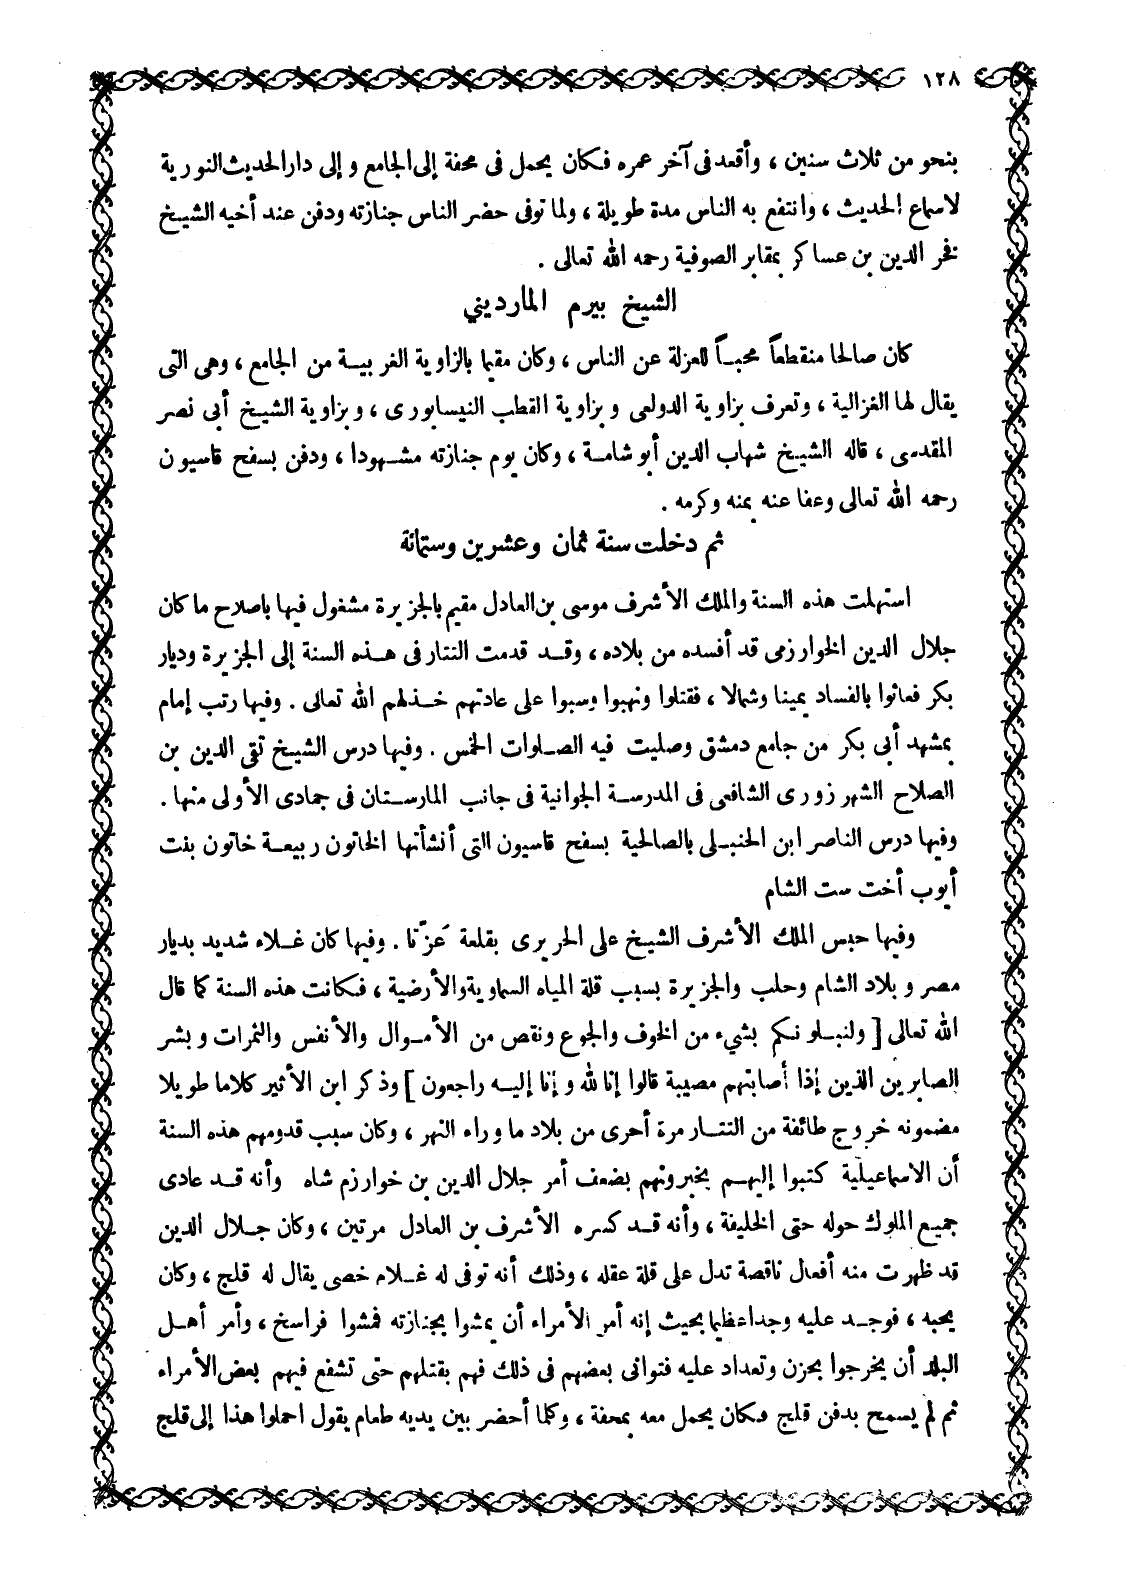 ١٢٨
بنحو من ثلاث سنين ، وأقعد فى آخر عمره فكان يحمل فى محفة إلى الجامع و إلى دار الحديث النورية
لاسماع الحديث ، وانتفع به الناس مدة طويلة ، ولما توفى حضر الناس جنازته ودفن عند أخيه الشيخ
فخر الدين بن عساكر بمقابر الصوفية رحمه الله تعالى .
الشيخ بيرم المارديني
كان صالحا منقطعاً محبـاً للعزلة عن الناس ، وكان مقيما بالزاوية الغربيـة من الجامع ، وهى التى
يقال لها الغزالية ، وتعرف بزاوية الدولعى وبزاوية القطب النيسابورى ، وبزاوية الشيخ أبى نصر
المقدسى ، قاله الشيخ شهاب الدين أبو شامـة ، وكان يوم جنازته مشهودا ، ودفن بسفح قاسيون
رحمه الله تعالى وعفا عنه بمنه وكرمه .
ثم دخلت سنة ثمان وعشرين وستمائة
استهلت هذه السنة والملك الأشرف موسى بن العادل مقيم بالجزيرة مشغول فيها باصلاح ما كان
جلال الدين الخوارزمى قد أفسده من بلاده ، وقـد قدمت التتار فى هـذه السنة إلى الجزيرة وديار
بكر فعاثوا بالفساد يمينا وشمالا ، فقتلوا ونهبوا وسبوا على عادتهم خـذلهم الله تعالى . وفيها رتب إمام
بمشهد أبى بكر من جامع دمشق وصليت فيه الصـلوات الخمس . وفيها درس الشيخ تقى الدين بن
الصلاح الشهرزورى الشافعى فى المدرسـة الجوانية فى جانب المارسـتان فى جمادى الأولى منها .
وفيها درس الناصر ابن الحنبـلى بالصالحية بسفح قاسيون التى أنشأتها الخاتون ربيعـة خاتون بنت
أيوب أخت ست الشام
وفيها حبس الملك الأشرف الشيخ على الحريرى بقلعة عَزّتا . وفيها كان غـلاء شديد بديار
مصر وبلاد الشام وحلب والجزيرة بسبب قلة المياه السماوية والأرضية ، فكانت هذه السنة كما قال
الله تعالى [ ولنبـلونـكم بشىء من الخوف والجوع ونقص من الأمـوال والأنفس والثمرات وبشر
الصابرين الذين إذا أصابتهم مصيبة قالوا إنا لله و إنا إليـه راجعون ] وذكر ابن الأثير كلاما طويلا
مضمونه خروج طائفة من التتـار مرة أخرى من بلاد ما وراء النهر ، وكان سبب قدومهم هذه السنة
أن الاسماعيلية كتبوا إليهـم يخبرونهم بضعف أمر جلال الدين بن خوارزم شاه وأنه قـد عادى
جميع الملوك حوله حتى الخليفة ، وأنه قـد كسره الأشرف بن العادل مرتين ، وكان جـلال الدين
قد ظهرت منه أفعال ناقصة تدل على قلة عقله ، وذلك أنه توفى له غـلام خصى يقال له قلج ، وكان
يحبه ، فوجـد عليه وجدا عظيما بحيث إنه أمر الأمراء أن يمشوا بجنازته فمشوا فراسخ ، وأمر أهـل
البلد أن يخرجوا بحزن وتعداد عليه فتوانى بعضهم فى ذلك فهم بقتلهم حتى تشفع فيهم بعض الأمراء
ثم لم يسمح بدفن قلج فكان يحمل معه بمحفة ، وكلما أحضر بين يديه طعام يقول احملوا هذا إلى قلج